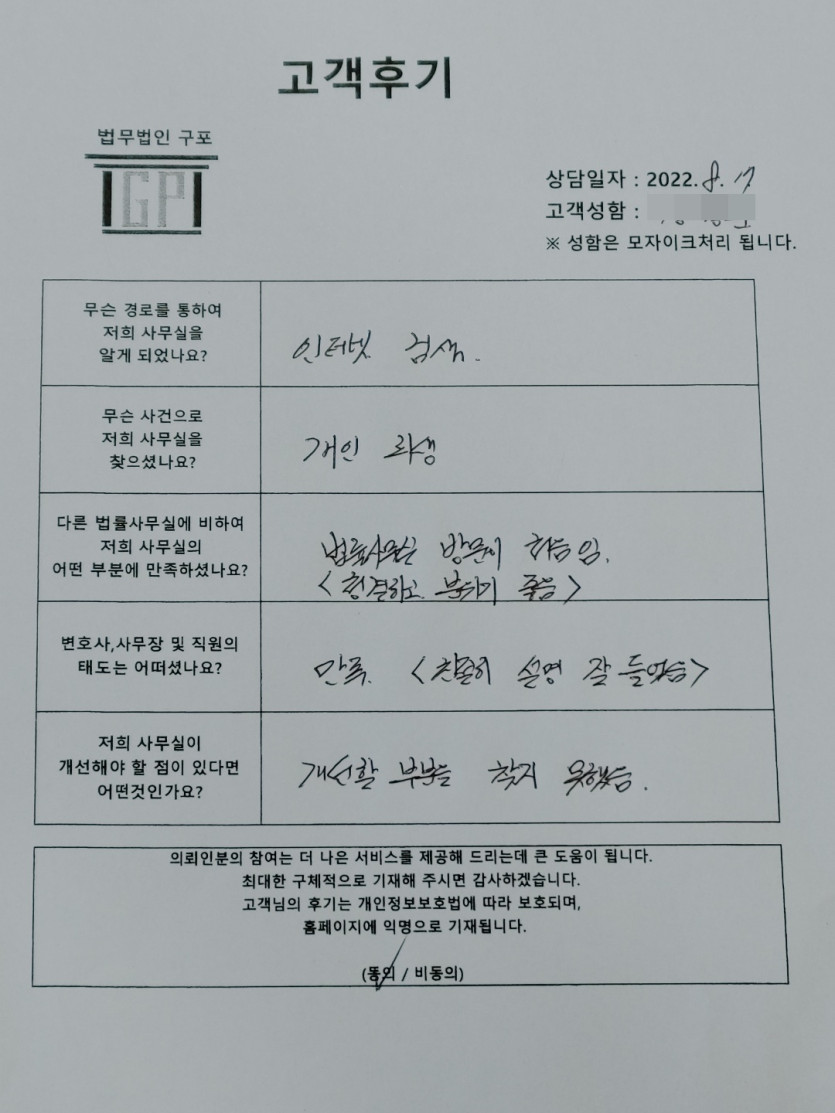 고객후기
법무법인 구포
GP
상담일자 : 2022. 8. 17
고객성함 :
※ 성함은 모자이크처리 됩니다.
무슨 경로를 통하여
저희 사무실을
알게 되었나요?
인터넷 검색.
무슨 사건으로
저희 사무실을
찾으셨나요?
개인 회생
다른 법률사무실에 비하여
저희 사무실의
어떤 부분에 만족하셨나요?
법률사무실 방문이 처음임.
<청결하고 분위기 좋음>
변호사,사무장 및 직원의
태도는 어떠셨나요?
만족. <친절히 설명 잘 들었음>
저희 사무실이
개선해야 할 점이 있다면
어떤것인가요?
개선할 부분을 찾지 못했음.
의뢰인분의 참여는 더 나은 서비스를 제공해 드리는데 큰 도움이 됩니다.
최대한 구체적으로 기재해 주시면 감사하겠습니다.
고객님의 후기는 개인정보보호법에 따라 보호되며,
홈페이지에 익명으로 기재됩니다.
(동의 / 비동의)